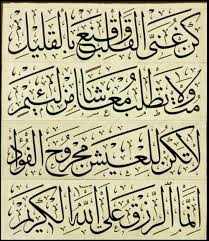 كن غني القلب واقنع بالقليل
مت ولا تطلب معاشا من لئيم
لا تكن للعيش مجروح الفؤاد
إنما الرزق على الله الكريم